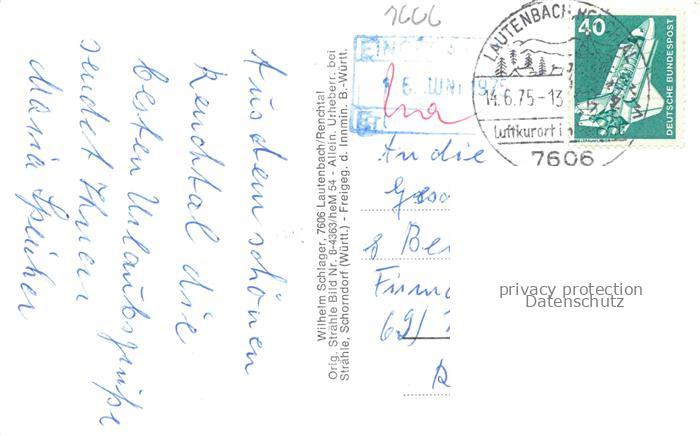 Aus dem schönen
Renchtal die
besten Urlaubsgrüße
sendet Ihnen
Maria Speicher
Wilhelm Schlager, 7606 Lautenbach/Renchtal
Orig. Strähle Bild Nr. 8-4363/heM 54 - Allein. Urheberr. bei
Strähle, Schorndorf (Württ.) - Freigeg. d. Innmin. B.-Württ.
1606
6. JUNI 1975
LAUTENBACH
14.6.75-13
Luftkurort i
7606
40
DEUTSCHE BUNDESPOST
An die
8 Be
Firma
69/
R
privacy protection
Datenschutz